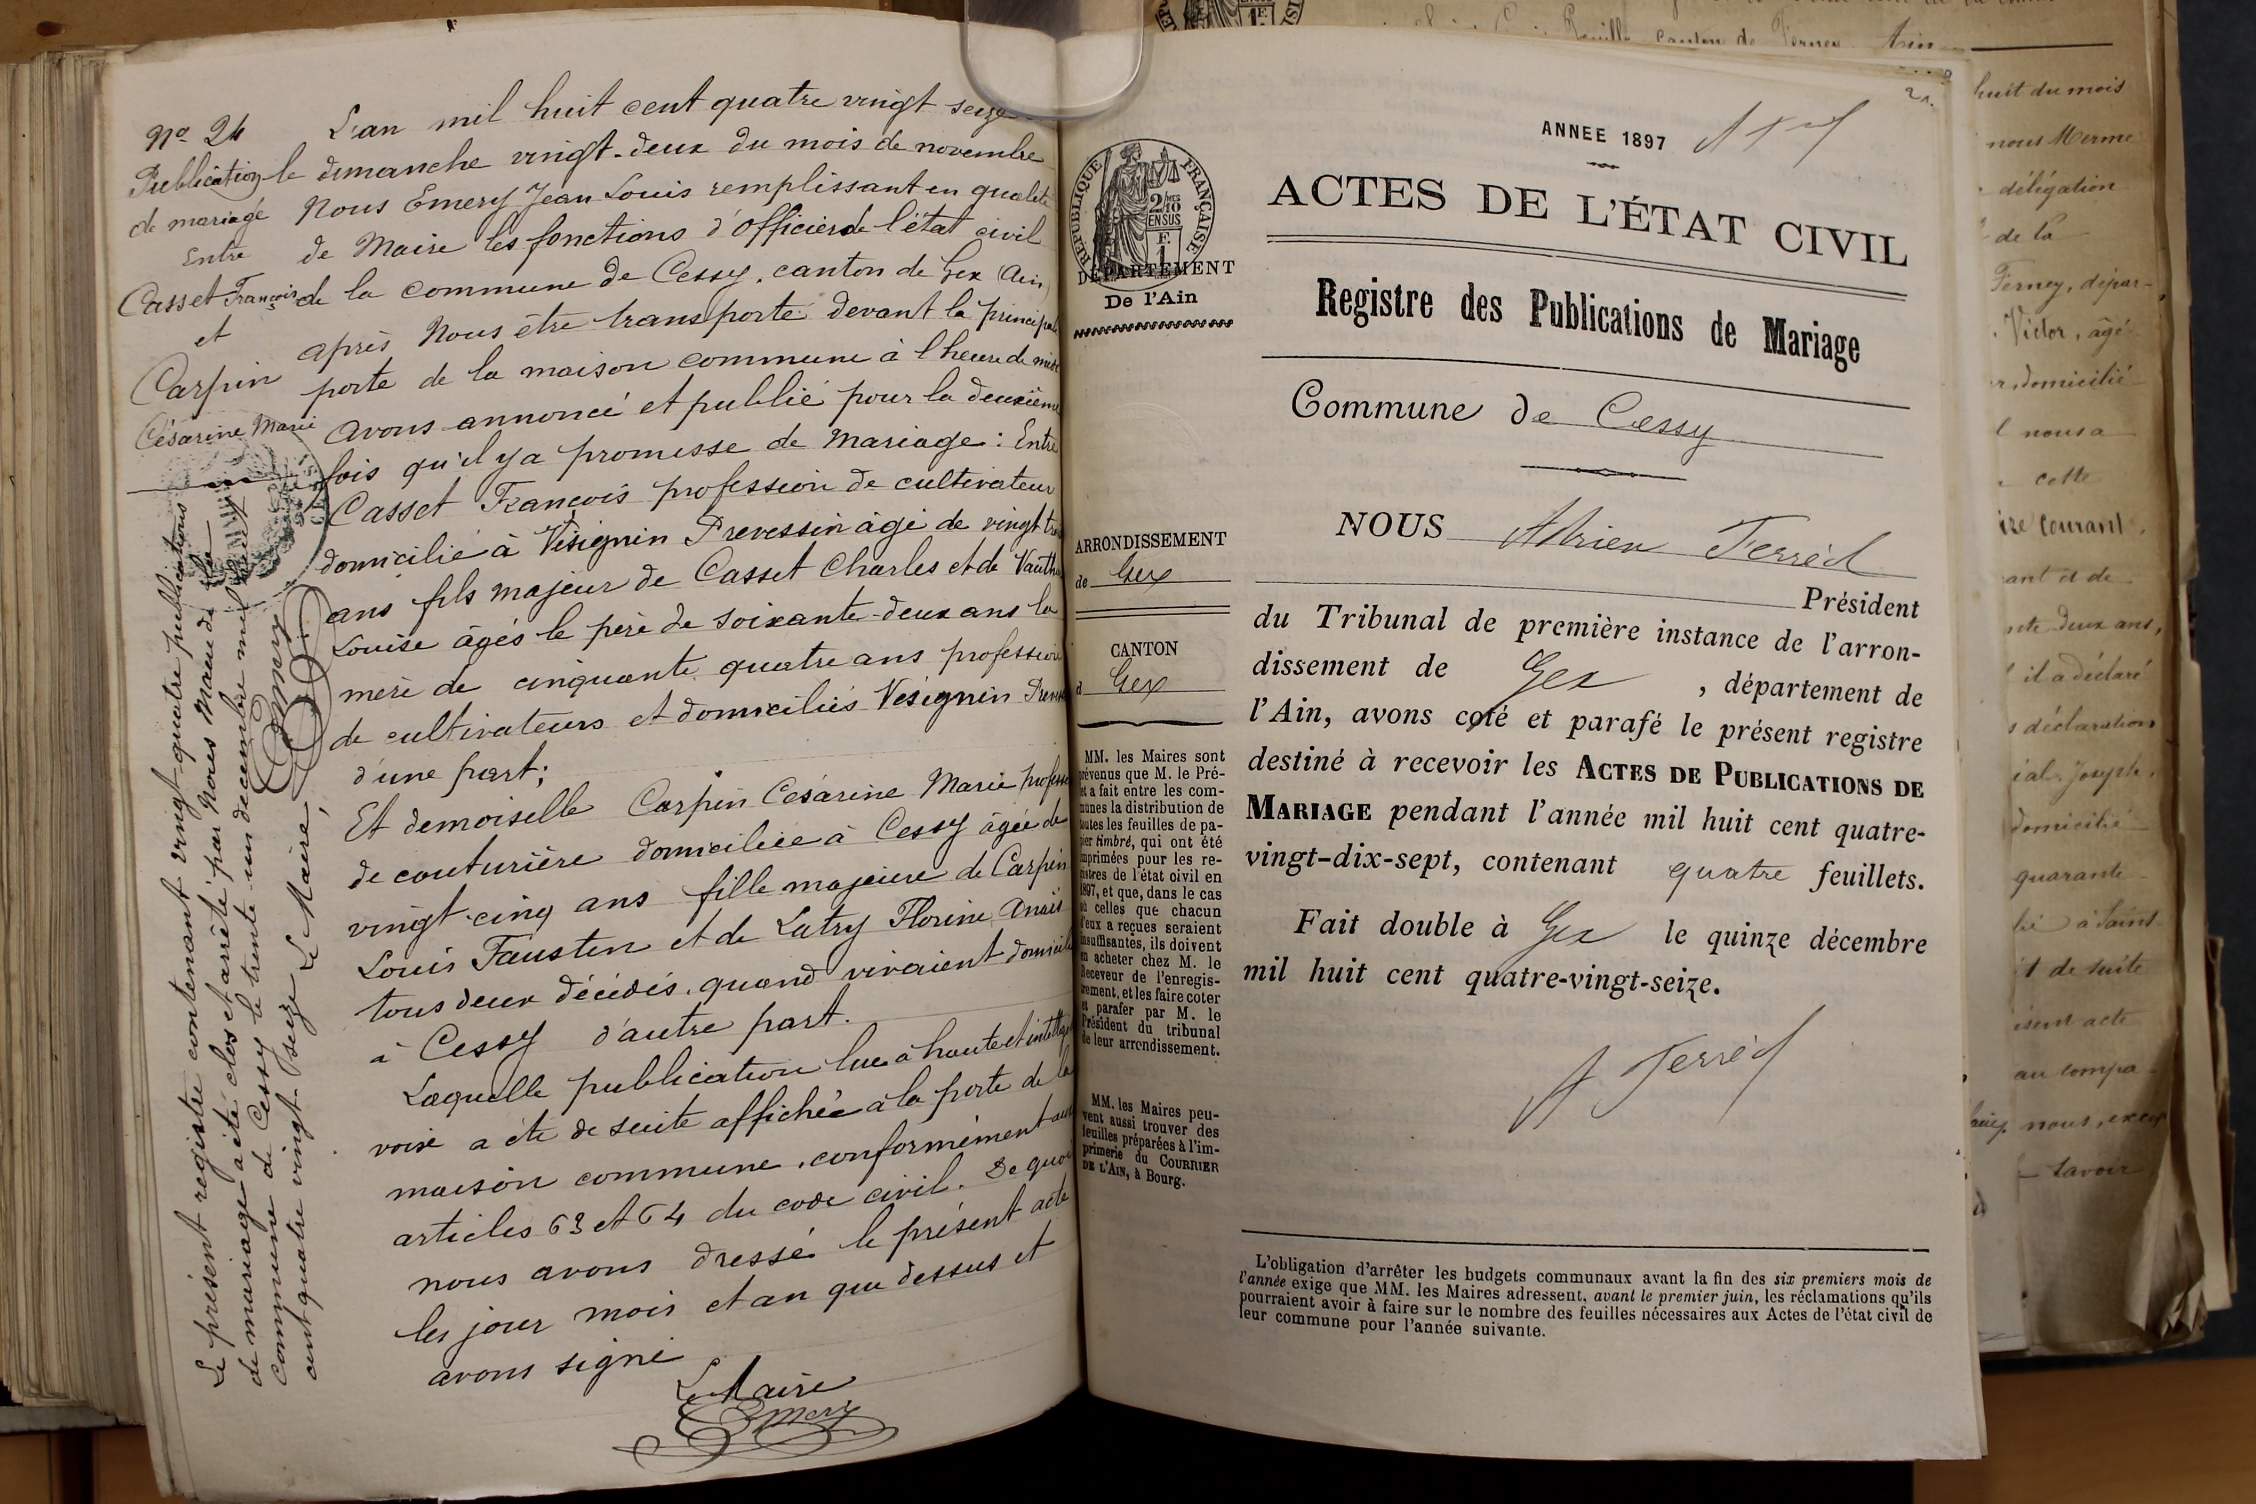 Nº 24
Publication
de mariage
Entre
Casset François
et
Carpin
Césarine Marie
L'an mil huit cent quatre vingt seize
le dimanche vingt-deux du mois de novembre
Nous Emery Jean Louis remplissant en qualité
de Maire les fonctions d'officier de l'état civil
de la commune de Cessy, canton de Gex (Ain)
après Nous être transporté devant la principale
porte de la maison commune à l'heure de midi
avons annoncé et publié pour la deuxième
fois qu'il y a promesse de mariage : Entre
Casset François profession de cultivateur
domicilié à Vésignin Prevessin âgé de vingt
ans fils majeur de Casset Charles et de
Louise âgés le père de soixante-deux ans la
mère de cinquante quatre ans profession
de cultivateurs et domiciliés Vésignin
d'une part ;
Et demoiselle Carpin Césarine Marie
de couturière domiciliée à Cessy âgée de
vingt-cinq ans fille majeure de Carpin
Louis Faustin et de Latry Florine Anaïs
tous deux décédés, quand vivaient
à Cessy d'autre part.
Laquelle publication lue à haute et
voix a été de suite affichée à la porte de la
maison commune, conformément aux
articles 63 et 64 du code civil. De quoi
nous avons dressé le présent acte
les jour mois et an que dessus et
avons signé
Le Maire
Emery
Le présent registre contenant vingt-quatre publications
de mariage a été clos et arrêté par Nous Maire de la
commune de Cessy le trente un décembre mil huit
cent quatre vingt-seize Le Maire,
Emery
ANNEE 1897
ACTES DE L'ÉTAT CIVIL
Registre des Publications de Mariage
Commune de Cessy
RÉPUBLIQUE FRANÇAISE
2/10 EN SUS
F. 1
DÉPARTEMENT
De l'Ain
ARRONDISSEMENT
de Gex
CANTON
d Gex
MM. les Maires sont
prévenus que M. le Pré-
et a fait entre les com-
munes la distribution de
toutes les feuilles de pa-
pier timbré, qui ont été
imprimées pour les re-
gistres de l'état civil en
1897, et que, dans le cas
où celles que chacun
d'eux a reçues seraient
insuffisantes, ils doivent
en acheter chez M. le
Receveur de l'enregis-
trement, et les faire coter
et parafer par M. le
Président du tribunal
de leur arrondissement.
MM. les Maires peu-
vent aussi trouver des
feuilles préparées à l'im-
primerie du COURRIER
DE L'AIN, à Bourg.
NOUS Adrien Ferrèd
Président
du Tribunal de première instance de l'arron-
dissement de Gex , département de
l'Ain, avons coté et parafé le présent registre
destiné à recevoir les ACTES DE PUBLICATIONS DE
MARIAGE pendant l'année mil huit cent quatre-
vingt-dix-sept, contenant quatre feuillets.
Fait double à Gex le quinze décembre
mil huit cent quatre-vingt-seize.
A Ferrèd
L'obligation d'arrêter les budgets communaux avant la fin des six premiers mois de
l'année exige que MM. les Maires adressent, avant le premier juin, les réclamations qu'ils
pourraient avoir à faire sur le nombre des feuilles nécessaires aux Actes de l'état civil de
leur commune pour l'année suivante.
canton de Ferney Ain
huit du mois
nous Merme
délégation
de la
Ferney, dépar-
Victor, âgé
domicilié
nous a
cette
courant
ant et de
deux ans,
il a déclaré
déclaration
Joseph,
domicilié
quarante
à Saint
et de suite
acte
au compa
nous,
savoir